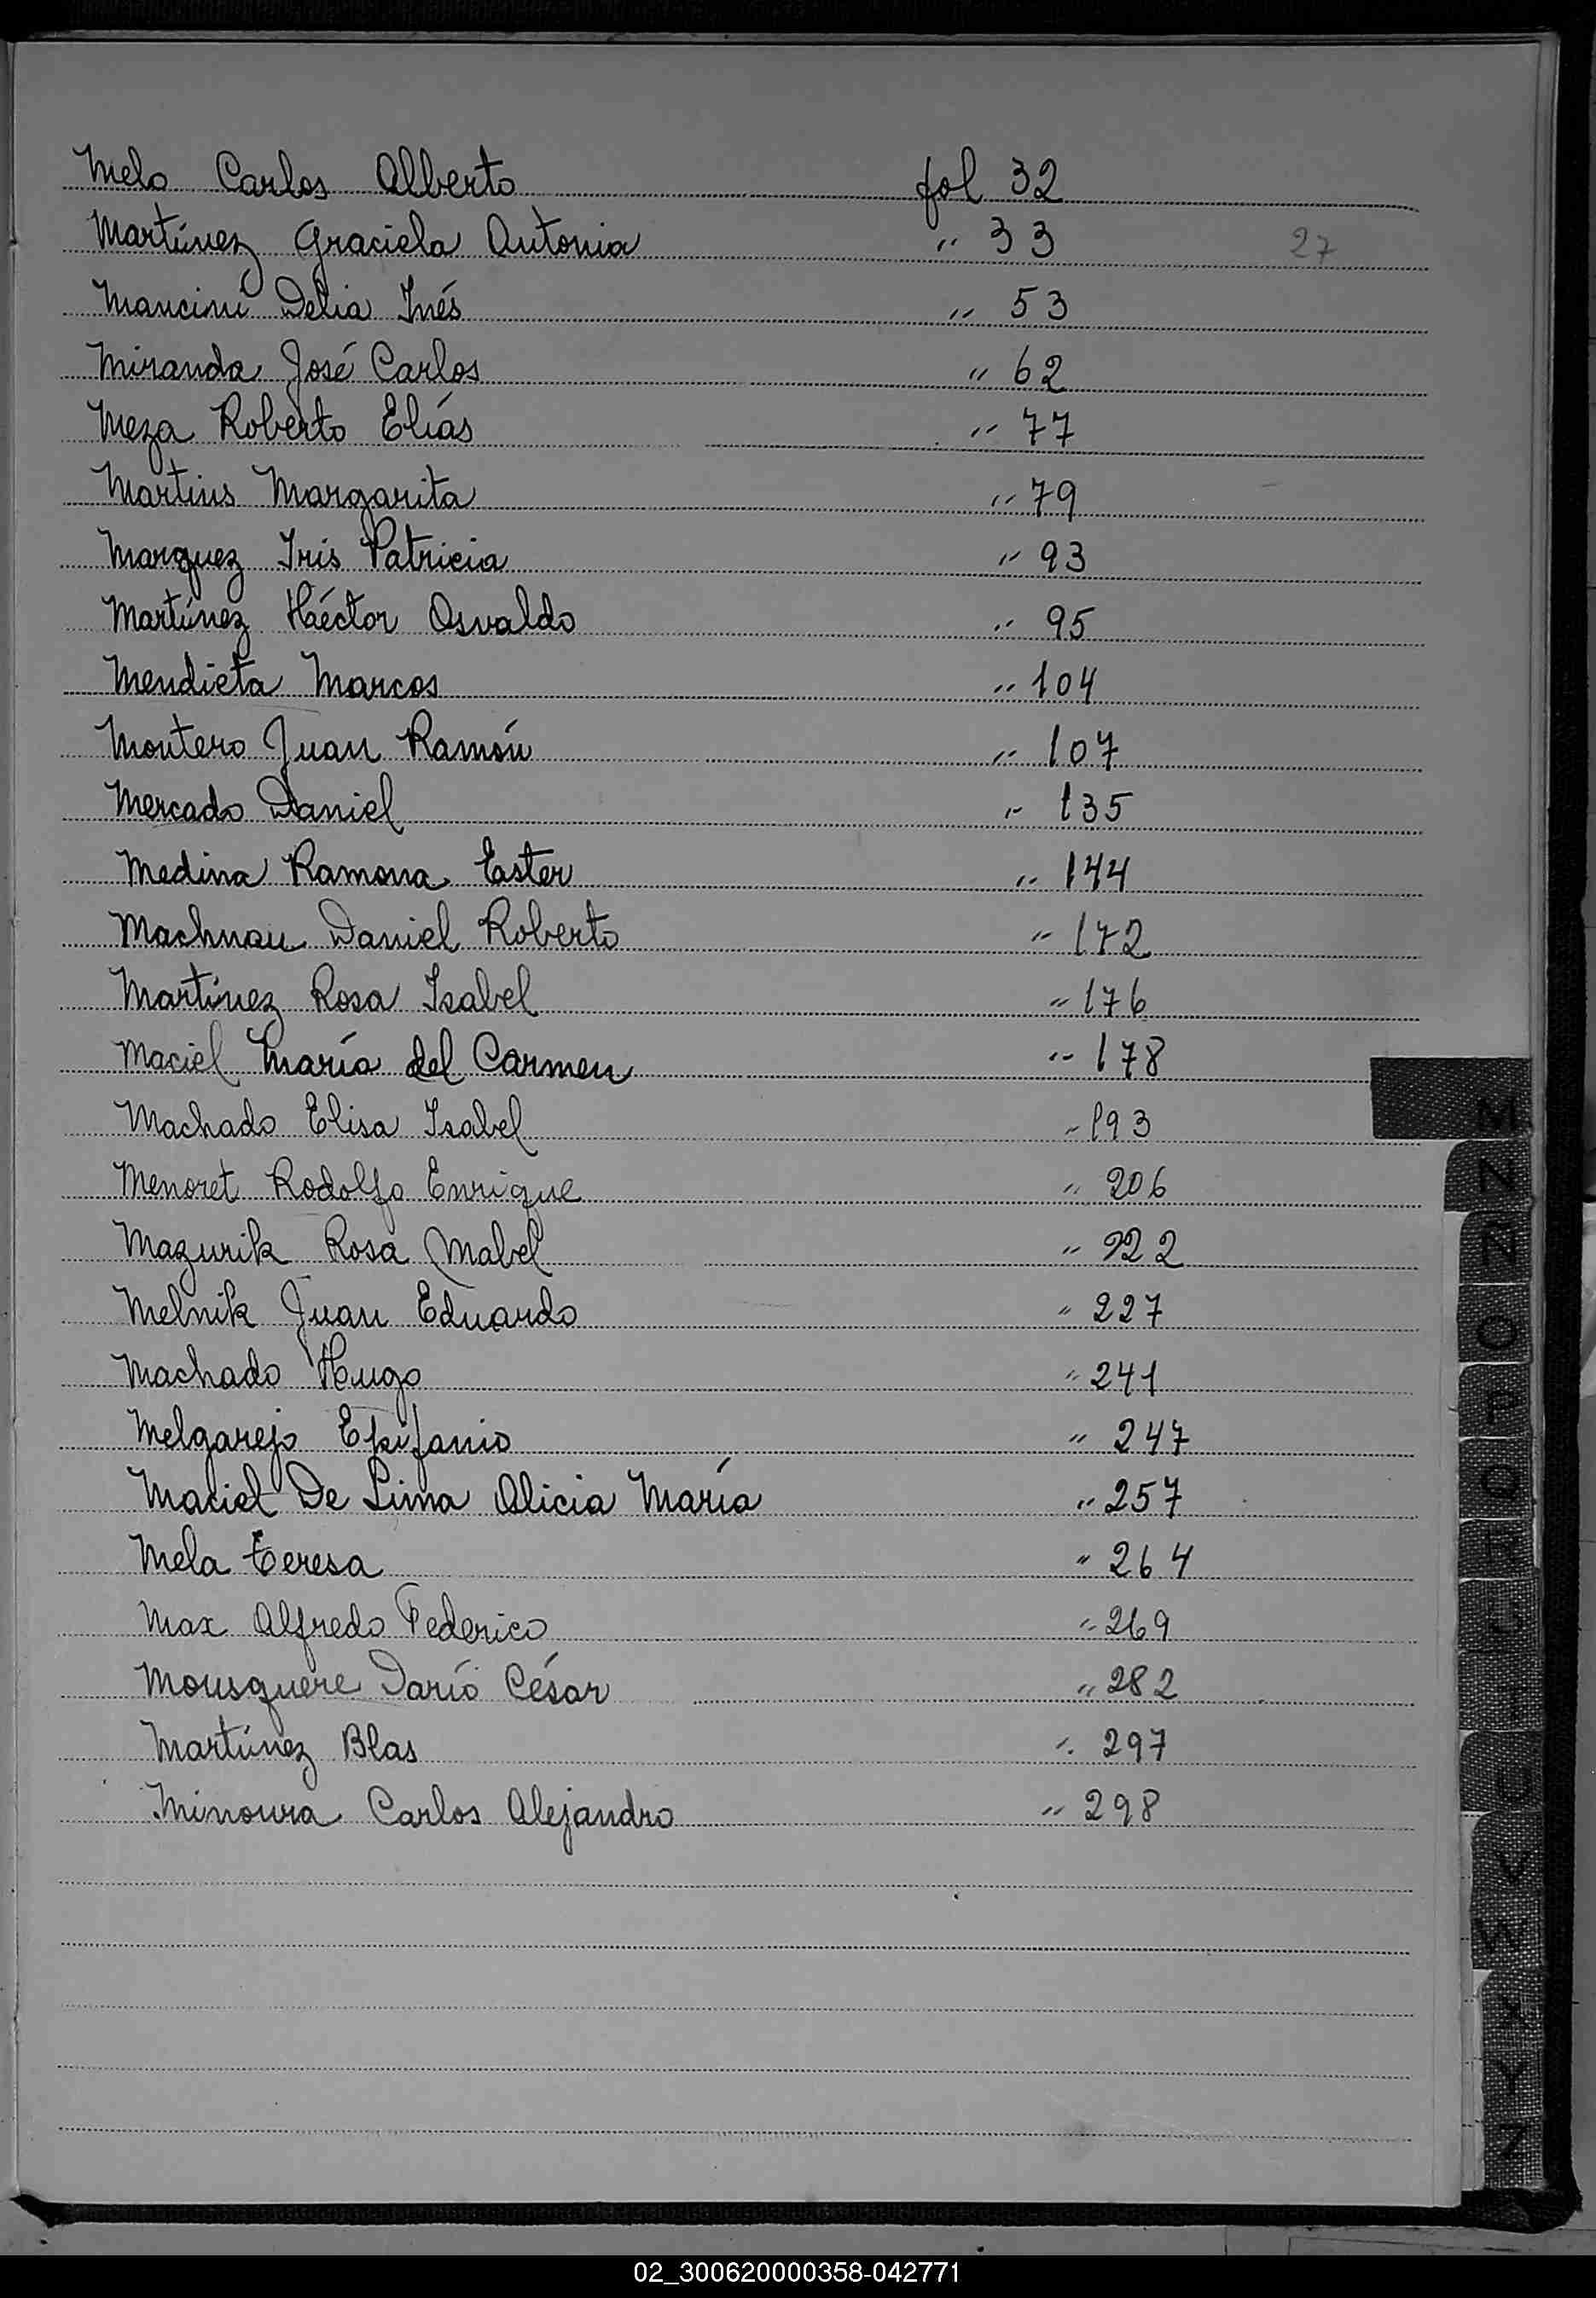 Melo Carlos Alberto fol 32
Martínez Graciela Antonia " 33 27
Mancini Delia Inés " 53
Miranda José Carlos " 62
Meza Roberto Elías " 77
Martins Margarita " 79
Marquez Iris Patricia " 93
Martínez Héctor Osvaldo " 95
Mendieta Marcos " 104
Montero Juan Ramón " 107
Mercado Daniel " 135
Medina Ramona Ester " 144
Machnau Daniel Roberto " 172
Martínez Rosa Isabel " 176
Maciel María del Carmen " 178
Machado Elisa Isabel " 193
Menoret Rodolfo Enrique " 206
Mazurik Rosa Mabel " 222
Melnik Juan Eduardo " 227
Machado Hugo " 241
Melgarejo Epifanio " 247
Maciel De Lima Alicia María " 257
Mela Teresa " 264
Max Alfredo Federico " 269
Mousquere Darío César " 282
Martínez Blas " 297
Minoura Carlos Alejandro " 298
M
N
Ñ
O
P
Q
R
S
T
U
V
W
X
Y
Z
02_300620000358-042771